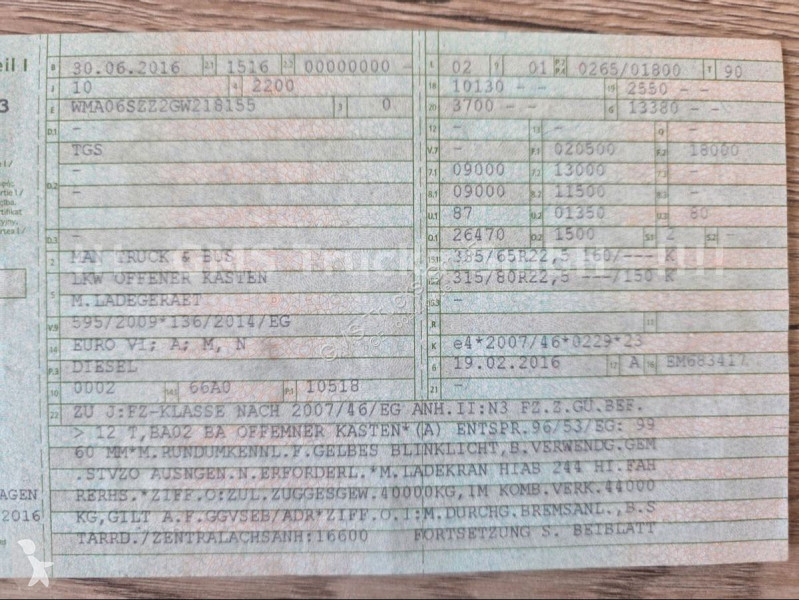 eil I B 30.06.2016 2.1 1516 2.2 00000000 - L 02 9 01 P.2 P.4 0265/01800 T 90
J 10 4 2200 18 10130 - - 19 2550 - -
E WMA06SZZ2GW218155 3 0 20 3700 - - G 13380 - -
D.1 - 12 - 13 - Q -
TGS V.7 - F.1 020500 F.2 18000
D.2 - 7.1 09000 7.2 13000 7.3 -
- 8.1 09000 8.2 11500 8.3 -
U.1 87 U.2 01350 U.3 80
D.3 - O.1 26470 O.2 1500 S.1 2 S.2 -
2 MAN TRUCK & BUS 15.1 385/65R22,5 160/--- K
5 LKW OFFENER KASTEN 15.2 315/80R22,5 ---/150 K
M.LADEGERAET 15.3 -
V.9 595/2009*136/2014/EG R 11
14 EURO VI; A; M, N K e4*2007/46*0229*23
P.3 DIESEL 6 19.02.2016 17 A 16 EM683417
10 0002 14.1 66A0 P.1 10518 21 -/
22 ZU J:FZ-KLASSE NACH 2007/46/EG ANH.II:N3 FZ.Z.GÜ.BEF.
> 12 T,BA02 BA OFFEMNER KASTEN*(A) ENTSPR.96/53/EG: 99
60 MM*M.RUNDUMKENNL.F.GELBES BLINKLICHT,B.VERWENDG.GEM
.STVZO AUSNGEN.N.ERFORDERL.*M.LADEKRAN HIAB 244 HI.FAH
RERHS.*ZIFF.O:ZUL.ZUGGESGEW.40000KG,IM KOMB.VERK.44000
KG,GILT A.F.GGVSEB/ADR*ZIFF.O.1:M.DURCHG.BREMSANL.,B.S
TARRD./ZENTRALACHSANH:16600 FORTSETZUNG S. BEIBLATT
AGEN
.2016